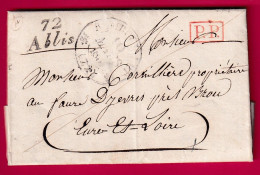 72
Ablis
P.P.
Monsieur
Monsieur Cornillière propriétaire
au faure Dyevres près Brou
Eure Et Loire